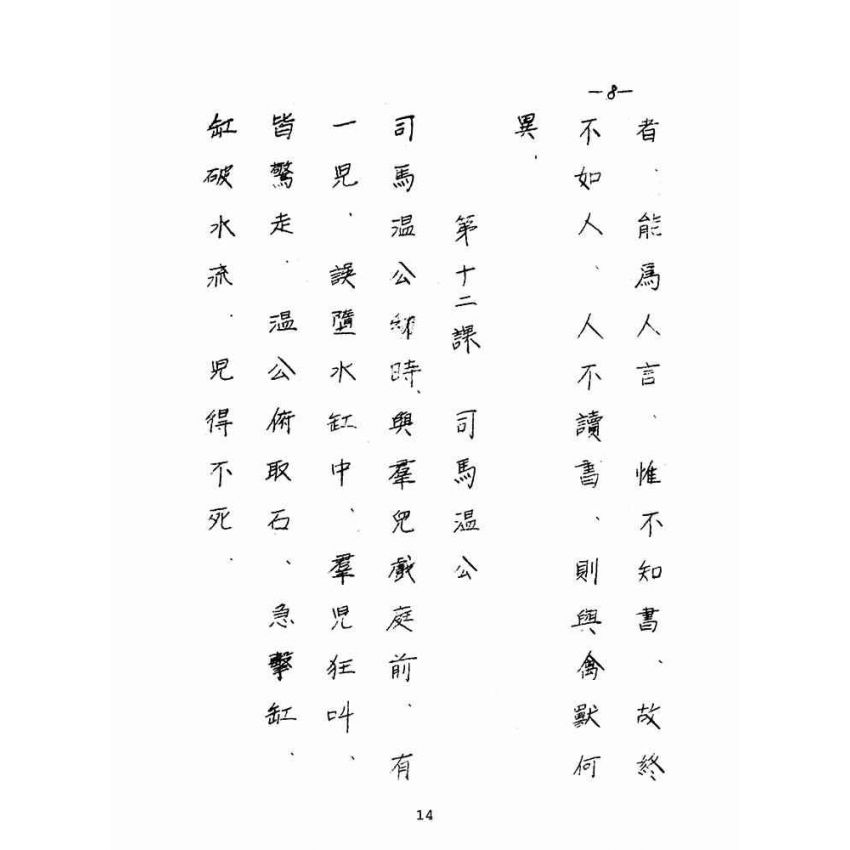 —8—
者、能爲人言、惟不知書、故終
不如人、人不讀書、則與禽獸何
異、
第十二課 司馬温公
司馬温公幼時、與羣兒戲庭前、有
一児、誤墮水缸中、羣児狂叫、
皆驚走、温公俯取石、急擊缸、
缸破水流、児得不死、
14